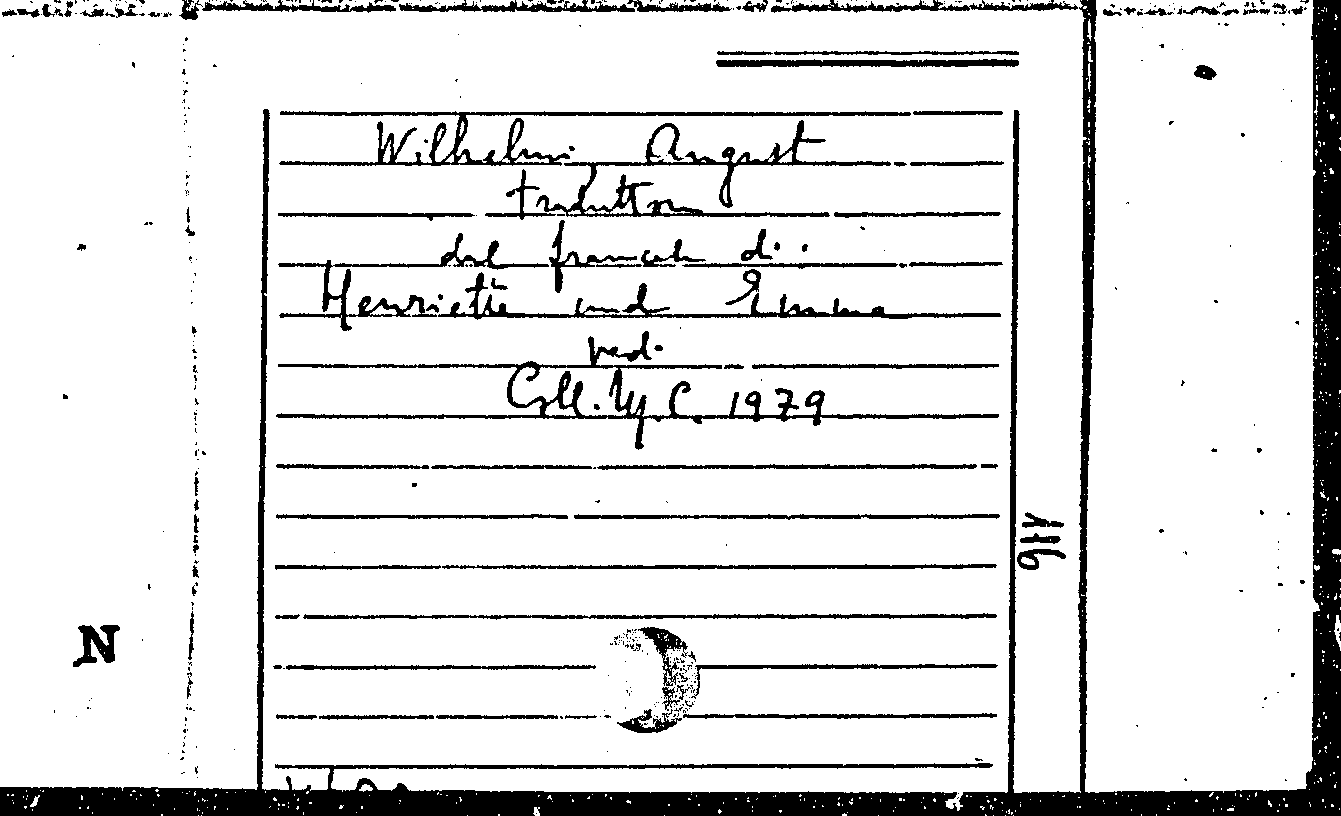 Wilhelmi, August
traduttore
dal francese di:
Henriette und Emma
ved.
Coll. M.C. 1979
N